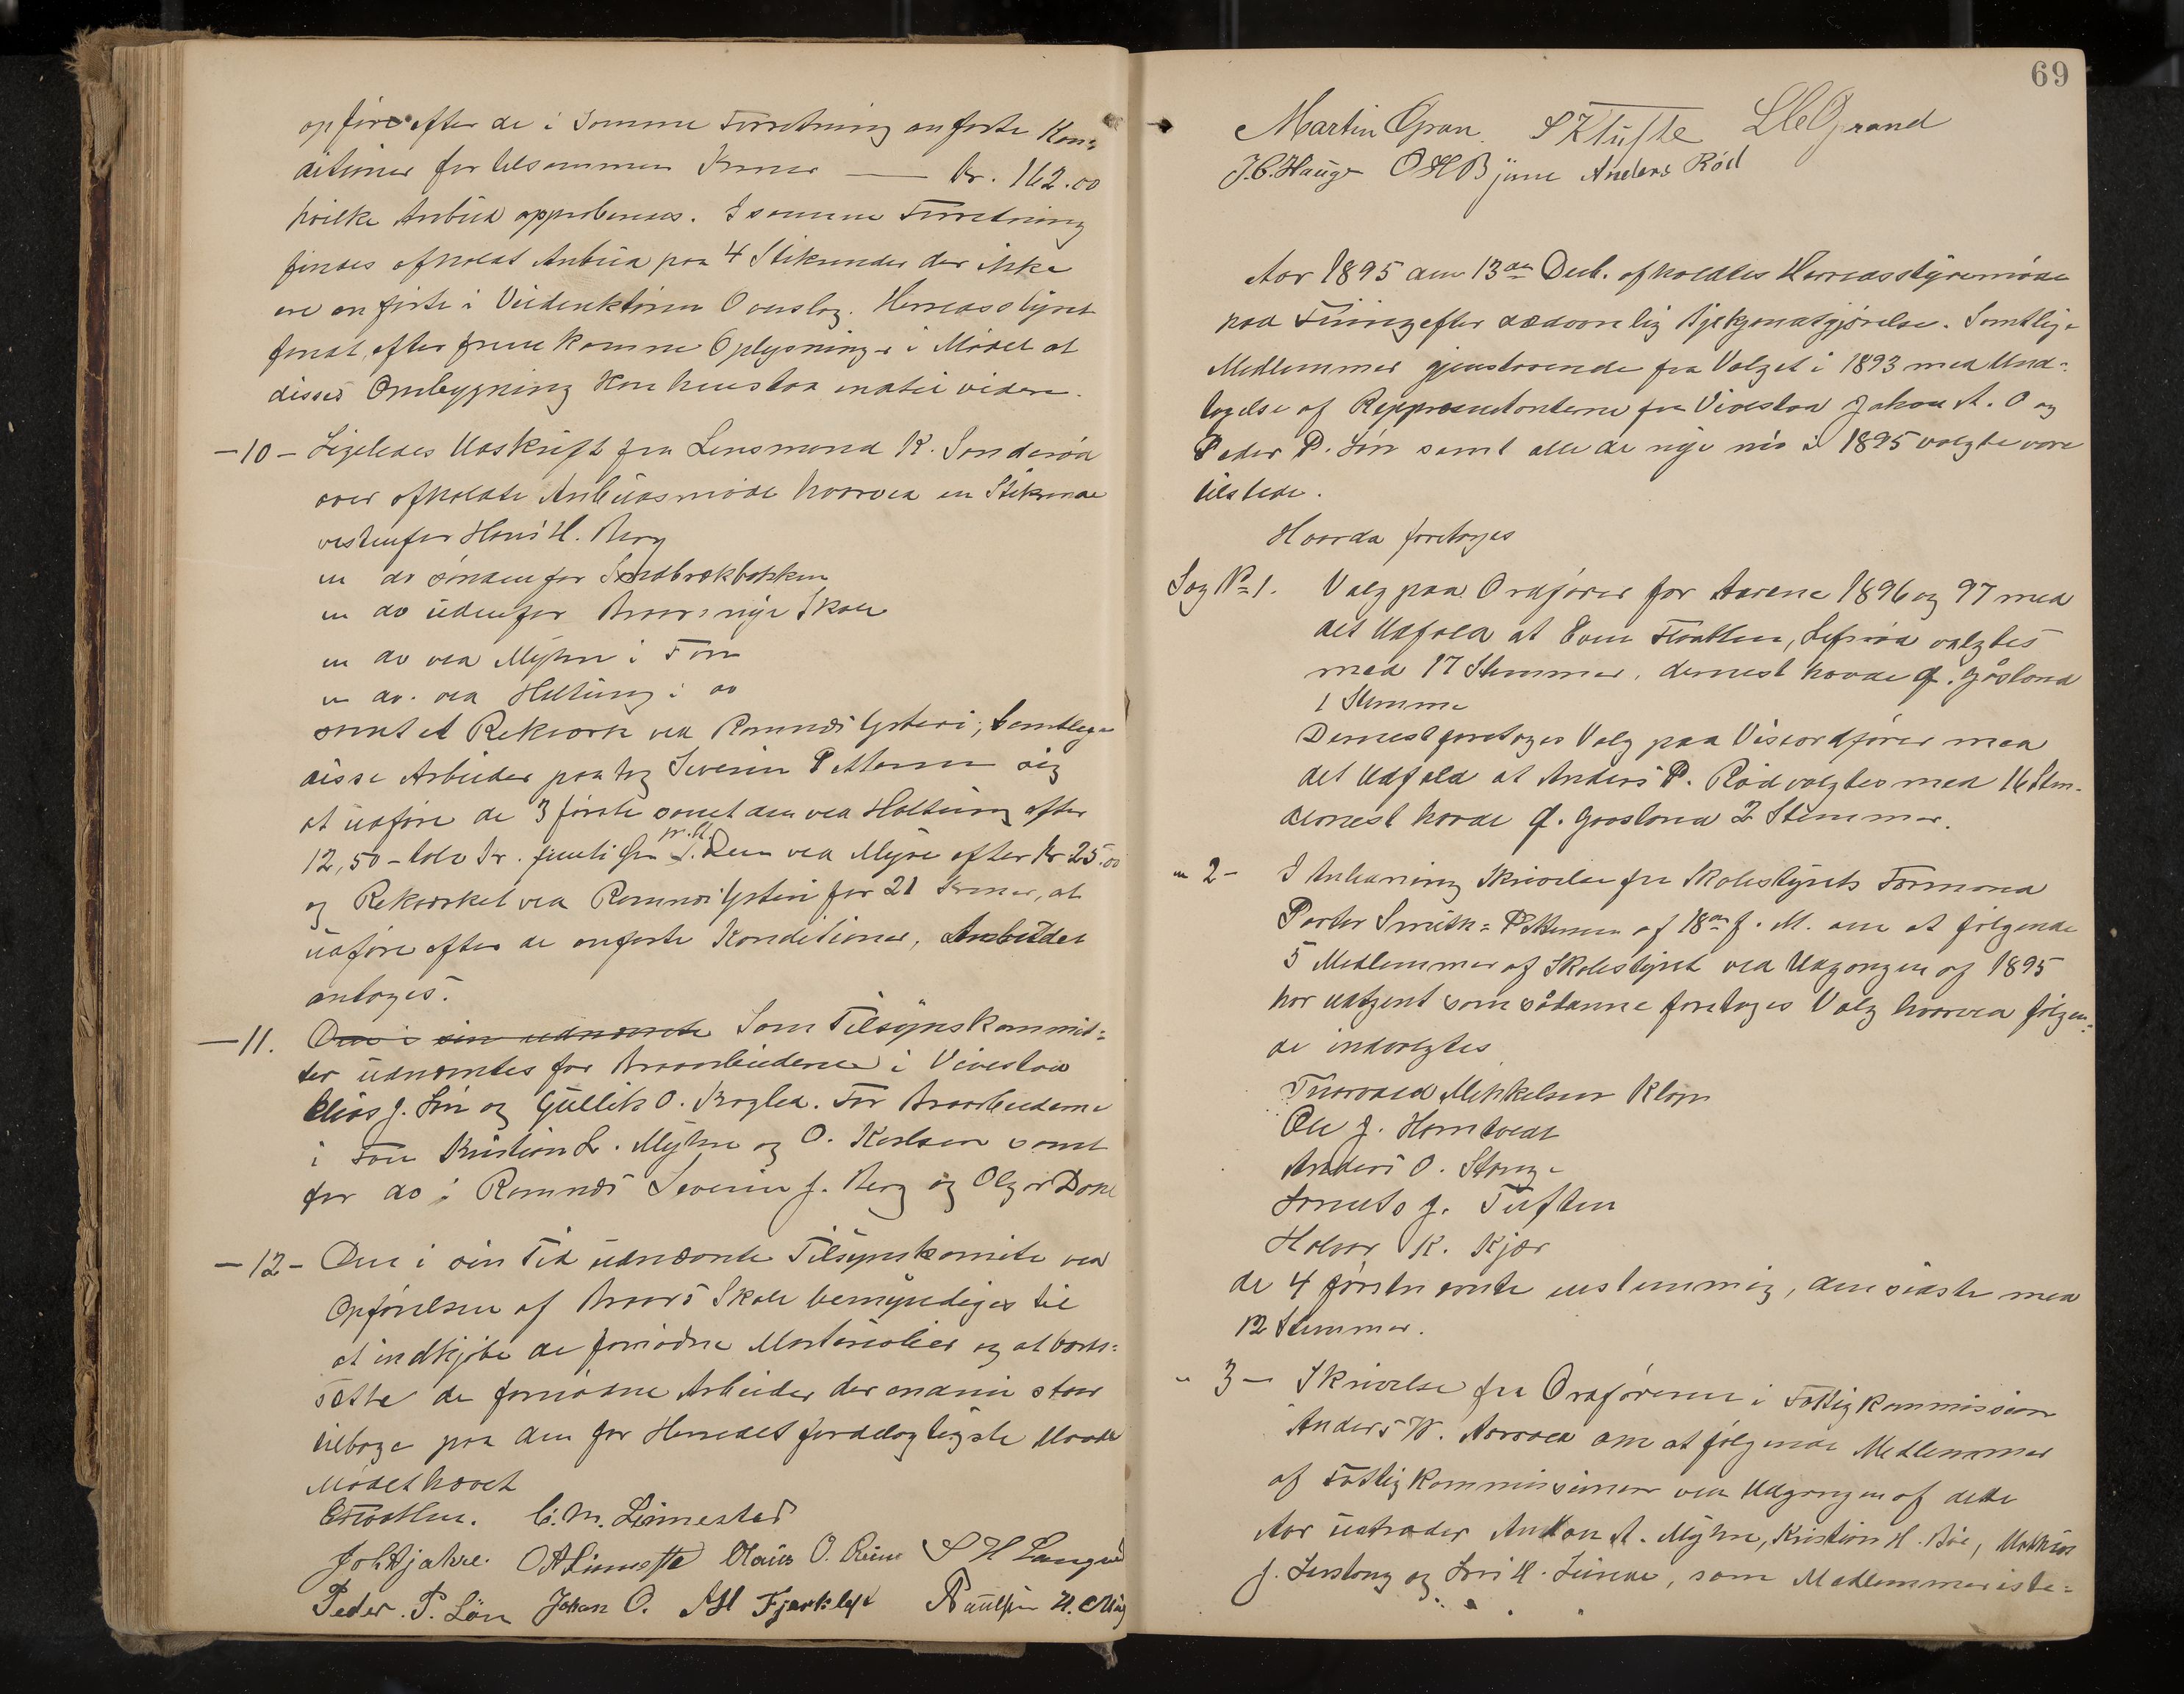 opføre efter de i samme Forretning anførte Kon=
ditioner for tilsammen Kroner — Kr. 162.00
hvilke Anbud approberes. I samme Forretning
findes afholdt Anbud paa 4 Stikrender der ikke
ere anførte i Veidirektørens Overslag. Herredsstyret
fandt, efter fremkomne Oplysninger i Mødet at
disses Ombygning kan henstaa indtil videre.
—10— Ligeledes Udskrift fra Lensmand K. Sonderød
over afholdte Anbudsmøde hvorved en Stikrende
vestenfor Hans H. Berg
en do søndenfor Sandbrækbakken
en do udenfor Aroos nye Skole
en do ved Myhre i Fon
en do. ved Holtung i do
samt et Rekværk ved Ramnæs Ysteri; Samtlige
disse Arbeider paatog Severin Pettersen sig
at udføre de 3 første samt den ved Holtung efter
pr. St.
12,50 – tolv Kr. femti Øre Den ved Myre efter Kr 25.00
og Rekværket ved Ramnæs Ysteri for 21 Kroner, at
udføre efter de anførte Konditioner, Anbudet
antoges.
—11. Den i sin udnævnte Som Tilsynskommit=
ter udnævntes for Aroarbeiderne i Vivestad
Elias J. Lôn og Gullik O. Kogled. For Aroarbeiderne
i Fon Kristian L. Myhre og O. Karlsen samt
for do i Ramnæs Severin J. Berg og Olgar Done
—12— Den i sin Tid udnævnte Tilsynskomite ved
Opførelsen af Aroos Skole bemyndiges til
at indkjøbe de fornødne Materialier og at bort=
sætte de fornødne Arbeider der endnu staar
tilbage paa den for Herredet fordelagtigste Maade
Mødet hævet
E Floatten. C. M. Linnestad
Joh Hjahre. O A Linnestad Olaus O. Reine S H Langved
Peder. P. Lôn Johan O. A H Fjærkleft N. C. Mûg
69
Martin Gran S K Tufte L C Grand
J. C. Hauge O H Bjûne Anders Rôd
Aar 1895 den 13de Decb. afholdtes Herredsstyremøde
paa Fûring efter sædvanlig Bjekjendtgjørelse. Samtlige
Medlemmer gjenstaaende fra Valget i 1893 med Und=
tagelse af Reppresentanterne fra Vivestad Johan A. O og
Peder P. Lôn samt alle de nye nu i 1895 valgte vare
tilstede.
Hvorda foretoges
Sag No 1. Valg paa Ordfører for Aarene 1896 og 97 med
det Udfald at Even Floatten, Lefsrød valgtes
med 17 Stemmer, dernest havde G. Gåsland
1 Stemme
Dernest foretoges Valg paa Viseordfører med
det Udfald at Anders P. Rød valgtes med 16 Stem.
dernest havde G. Gaasland 2 Stemmer.
" 2 — I Anledning Skrivelse fra Skolestyrets Formand
Pastor Smith=Petersen af 18de f. M. om at følgende
5 Medlemmer af Skolestyret ved Udgangen af 1895
har udtjent som sådanne foretoges Valg hvorved følgen=
de indvalgtes
Thorvald Mikkelsen Klopp
Ole J. Horntvedt
Anders O. Stange
Lorents J. Tuften
Halvor K. Kjær
de 4 førstnævnte enstemmig, den sidste med
12 Stemmer.
" 3 — Skrivelse fra Ordføreren i Fattigkommission
Anders W. Aarvold om at følgende Medlemmer
af Fattigkommissionen ved Udgangen af dette
Aar udtræder Anton A. Myhre, Kristian H. Bøe, Mathias
J. Lerstang og Lars H. Linde, som Medlemmer iste=